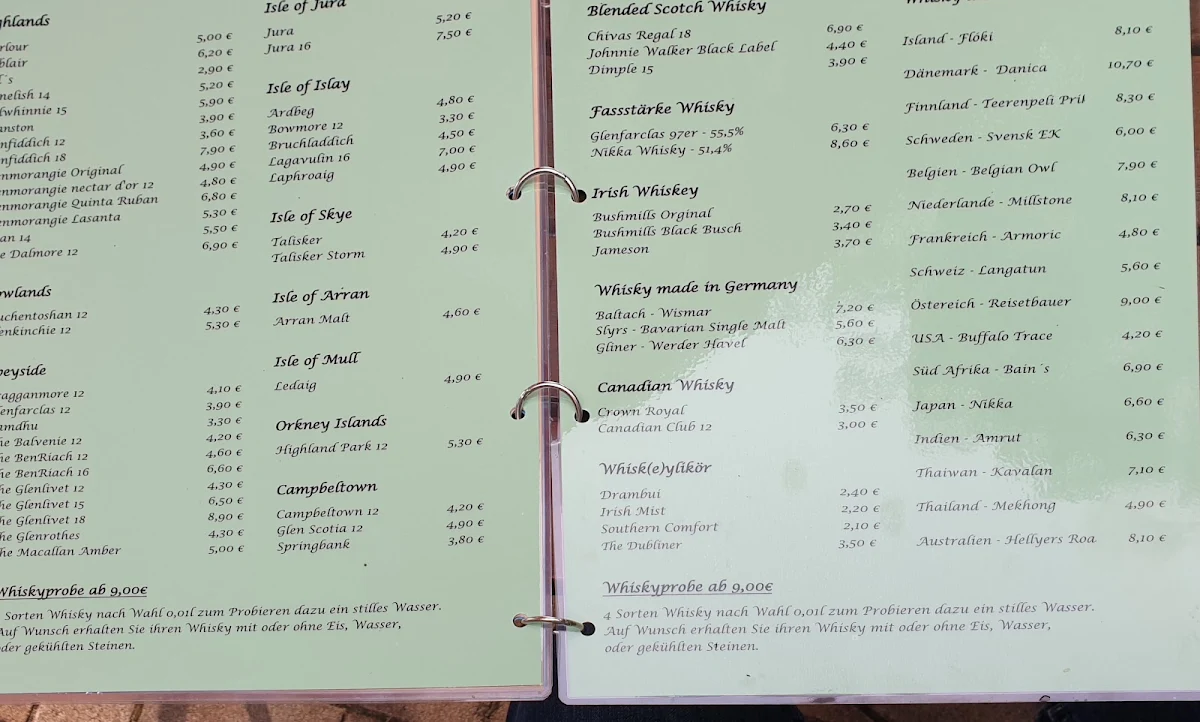 ghlands
rlour 5,00 €
blair 6,20 €
l´s 2,90 €
nelish 14 5,20 €
lwhinnie 15 5,90 €
anston 3,90 €
nfiddich 12 3,60 €
nfiddich 18 7,90 €
enmorangie Original 4,90 €
enmorangie nectar d'or 12 4,80 €
enmorangie Quinta Ruban 6,80 €
enmorangie Lasanta 5,30 €
an 14 5,50 €
e Dalmore 12 6,90 €
owlands
uchentoshan 12 4,30 €
enkinchie 12 5,30 €
peyside
ragganmore 12 4,10 €
enfarclas 12 3,90 €
amdhu 3,30 €
he Balvenie 12 4,20 €
he BenRiach 12 4,60 €
he BenRiach 16 6,60 €
he Glenlivet 12 4,30 €
he Glenlivet 15 6,50 €
he Glenlivet 18 8,90 €
he Glenrothes 4,30 €
he Macallan Amber 5,00 €
Isle of Jura
Jura 5,20 €
Jura 16 7,50 €
Isle of Islay
Ardbeg 4,80 €
Bowmore 12 3,30 €
Bruchladdich 4,50 €
Lagavulin 16 7,00 €
Laphroaig 4,90 €
Isle of Skye
Talisker 4,20 €
Talisker Storm 4,90 €
Isle of Arran
Arran Malt 4,60 €
Isle of Mull
Ledaig 4,90 €
Orkney Islands
Highland Park 12 5,30 €
Campbeltown
Campbeltown 12 4,20 €
Glen Scotia 12 4,90 €
Springbank 3,80 €
Whiskyprobe ab 9,00€
Sorten Whisky nach Wahl 0,01l zum Probieren dazu ein stilles Wasser.
Auf Wunsch erhalten Sie ihren Whisky mit oder ohne Eis, Wasser,
oder gekühlten Steinen.
Blended Scotch Whisky
Chivas Regal 18 6,90 €
Johnnie Walker Black Label 4,40 €
Dimple 15 3,90 €
Fassstärke Whisky
Glenfarclas 97er - 55,5% 6,30 €
Nikka Whisky - 51,4% 8,60 €
Irish Whiskey
Bushmills Orginal 2,70 €
Bushmills Black Busch 3,40 €
Jameson 3,70 €
Whisky made in Germany
Baltach - Wismar 7,20 €
Slyrs - Bavarian Single Malt 5,60 €
Gliner - Werder Havel 6,30 €
Canadian Whisky
Crown Royal 3,50 €
Canadian Club 12 3,00 €
Whisk(e)ylikör
Drambui 2,40 €
Irish Mist 2,20 €
Southern Comfort 2,10 €
The Dubliner 3,50 €
Island - Flóki 8,10 €
Dänemark - Danica 10,70 €
Finnland - Teerenpeli Pri 8,30 €
Schweden - Svensk EK 6,00 €
Belgien - Belgian Owl 7,90 €
Niederlande - Millstone 8,10 €
Frankreich - Armoric 4,80 €
Schweiz - Langatun 5,60 €
Östereich - Reisetbauer 9,00 €
USA - Buffalo Trace 4,20 €
Süd Afrika - Bain´s 6,90 €
Japan - Nikka 6,60 €
Indien - Amrut 6,30 €
Thaiwan - Kavalan 7,10 €
Thailand - Mekhong 4,90 €
Australien - Hellyers Roa 8,10 €
Whiskyprobe ab 9,00€
4 Sorten Whisky nach Wahl 0,01l zum Probieren dazu ein stilles Wasser.
Auf Wunsch erhalten Sie ihren Whisky mit oder ohne Eis, Wasser,
oder gekühlten Steinen.